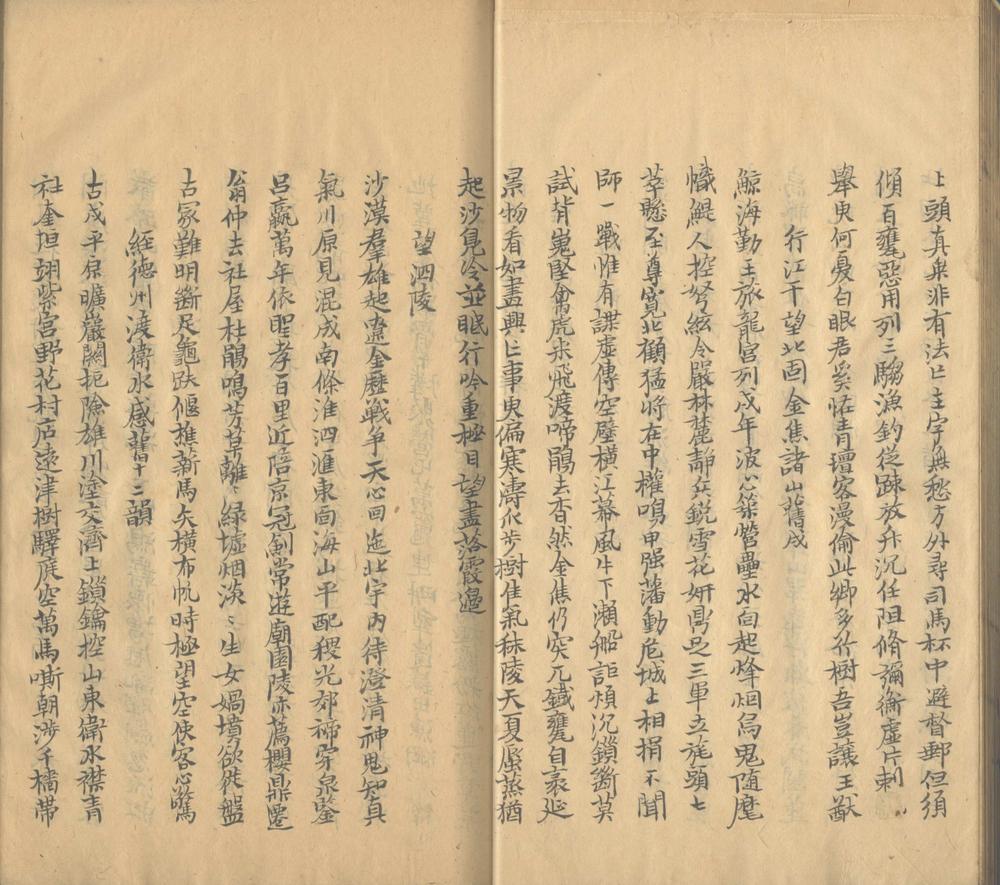 上頭真乘非有法上主字無愁方外尋司馬杯中避督郵但須
傾百甕惡用列三騶漁釣從踈放升沉任阻脩禰衡虛片刺
舉史何憂白眼君奚怪青璮客漫偷此鄉多竹樹吾豈讓王猷
行江干望北固金焦諸山舊戍
鯨海勤王旅龍宮列戍年波心築營壘水面起烽烟烏鬼隨麾
幟鯤人控弩絃令嚴林麓靜兵銳雪花妍鼎足三軍立旄頭七
萃懸至尊寬北顧猛將在中權鳴甲强藩動危城上相捐不聞
師一戰惟有諜虛傳空壁橫江幕風牛下瀨船詎煩沉鎖斷莫
試背嵬堅禽虎來飛渡啼鵑去杳然金焦仍突兀鐵甕自衺延
景物看如畫興亡事更偏寒濤瓜步樹佳氣秣陵天夏蜃蒸猶
起沙鳧冷並眠行吟重極目望盡落霞邊
望泗陵
沙漠羣雄起遼金歷戰爭天心回迤北宇內待澄清神鬼知真
氣川原見混成南條淮泗滙東面海山平配稷光郊禘穿泉鑒
呂嬴萬年依聖孝百里近陪京冠劍常遊廟園陵亦薦櫻鼎遷
翁仲去社屋杜鵑鳴芳草離〻綠墟烟淡〻生女媧墳欲徙盤
古冢難明斷足龜趺偃樵薪馬矢橫布帆時極望空使客心驚
經德州渡衛水感舊十三韻
古戍平京曠巖關扼險雄川塗交濟上鎖鑰控山東衛水襟青
社奎垣翊紫宮野花村店遠津樹驛庭空萬馬嘶朝涉千檣帶